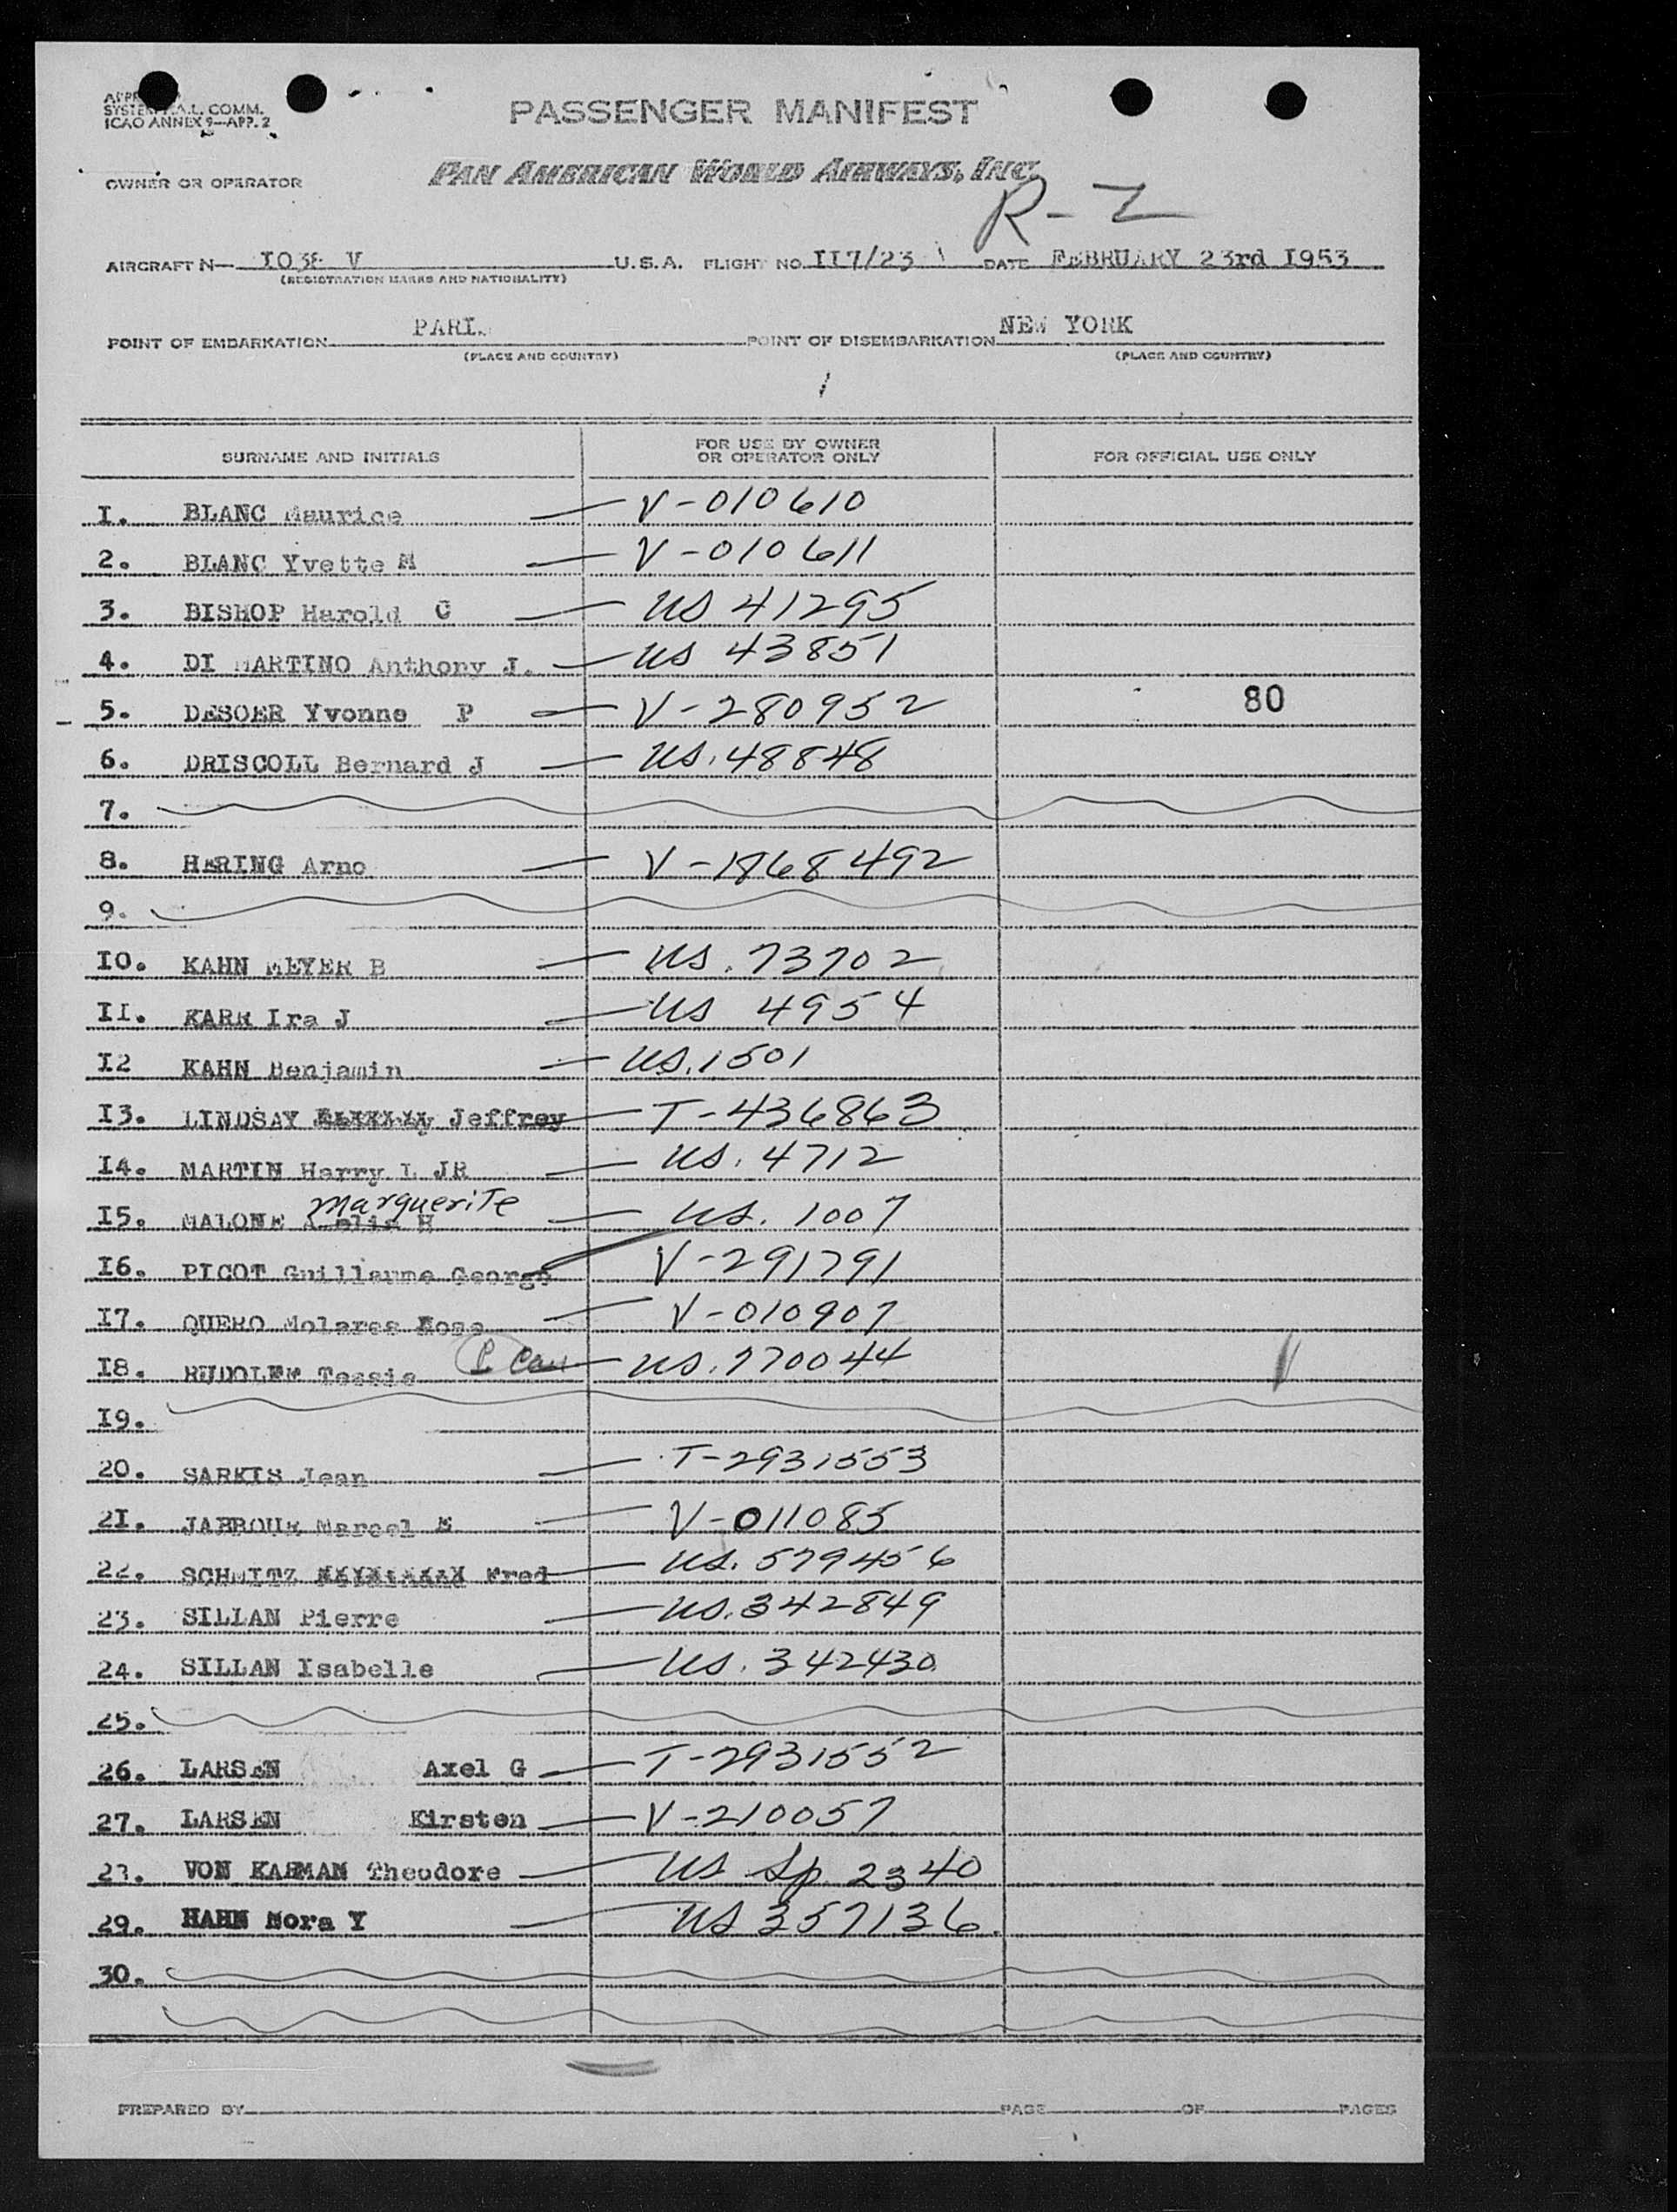 PASSENGER MANIFEST
SYSTEM A.L. COMM.
ICAO ANNEX 9—APP. 2
OWNER OR OPERATOR PAN AMERICAN WORLD AIRWAYS, INC.
R-Z
AIRCRAFT N— V U.S.A. FLIGHT NO. II7/23 DATE FEBRUARY 23rd I953
(REGISTRATION MARKS AND NATIONALITY)
POINT OF EMBARKATION PARI POINT OF DISEMBARKATION NEW YORK
(PLACE AND COUNTRY) (PLACE AND COUNTRY)
SURNAME AND INITIALS FOR USE BY OWNER OR OPERATOR ONLY FOR OFFICIAL USE ONLY
I. BLANC Maurice — V-010610
2. BLANC Yvette M — V-010611
3. BISHOP Harold C — US 41295
4. DI MARTINO Anthony J. — US 43851
5. DESOER Yvonne P — V-280952 80
6. DRISCOLL Bernard J — US. 48848
7.
8. HERING Arno — V-1868492
9.
IO. KAHN MEYER B — US. 73702
II. KARR Ira J — US 4954
I2 KAHN Benjamin — US. 1501
I3. LINDSAY Jeffrey — T-436863
I4. MARTIN Harry L JR — US. 4712
Marguerite
I5. MALONE H — US. 1007
I6. PICOT Guillaume George — V-291791
I7. QUERO Molares Jose — V-010907
I8. Tessie — US. 770044
I9.
20. SARKIS Jean — T-2931553
2I. JABBOUR Marcel E — V-011085
22. SCHMITZ Fred — US. 579456
23. SILLAN Pierre — US. 342849
24. SILLAN Isabelle — US. 342430
25.
26. LARSEN Axel G — T-2931552
27. LARSEN Kirsten — V-210057
28. VON KARMAN Theodore — US Sp. 2340
29. HAHN Nora Y — US 357136
30.
PREPARED BY PAGE OF PAGES